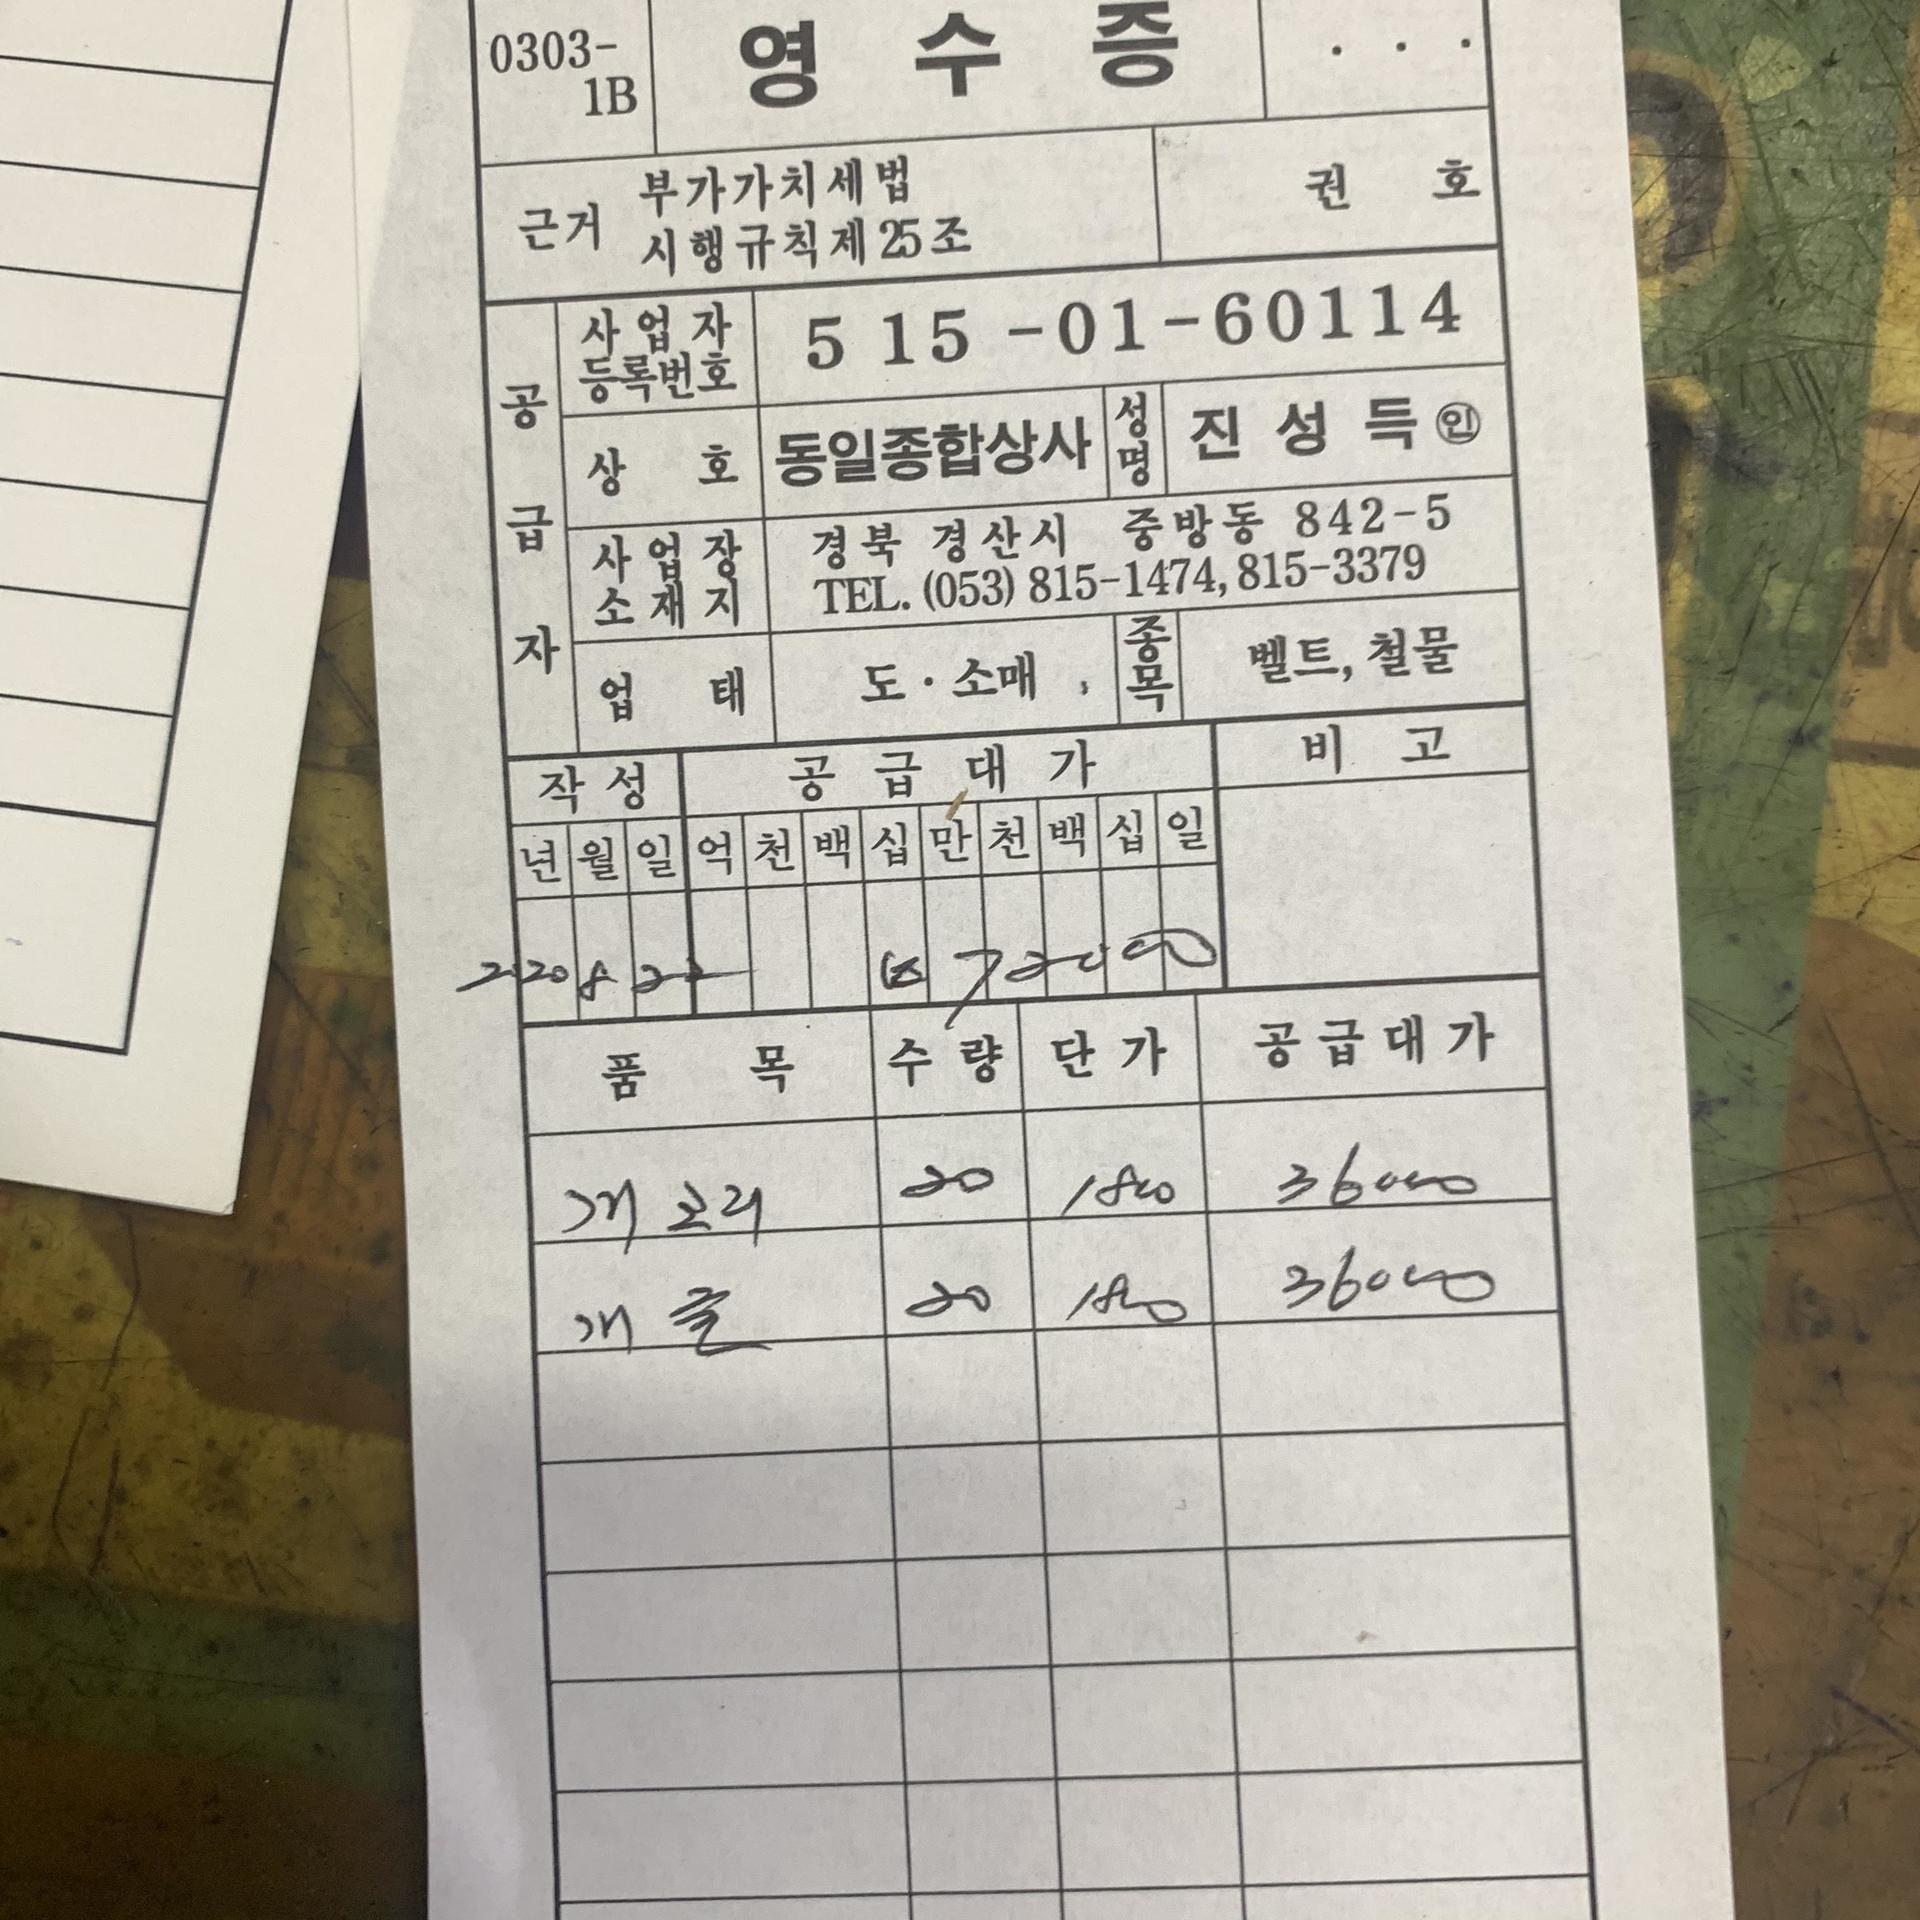 0303-
1B
영 수 증
. . .
근거
부가가치세법
시행규칙제 25조
권 호
공급자
사업자
등록번호
515-01-60114
상 호
동일종합상사
성명
진성득 ㊞
사업장
소재지
경북 경산시 중방동 842-5
TEL. (053) 815-1474, 815-3379
업 태
도·소매,
종목
벨트, 철물
작성
공급대가
비고
년 월 일 억 천 백 십 만 천 백 십 일
2020 8 22 72000
품 목 수량 단가 공급대가
개 고리 20 1800 36000
개 줄 20 1800 36000